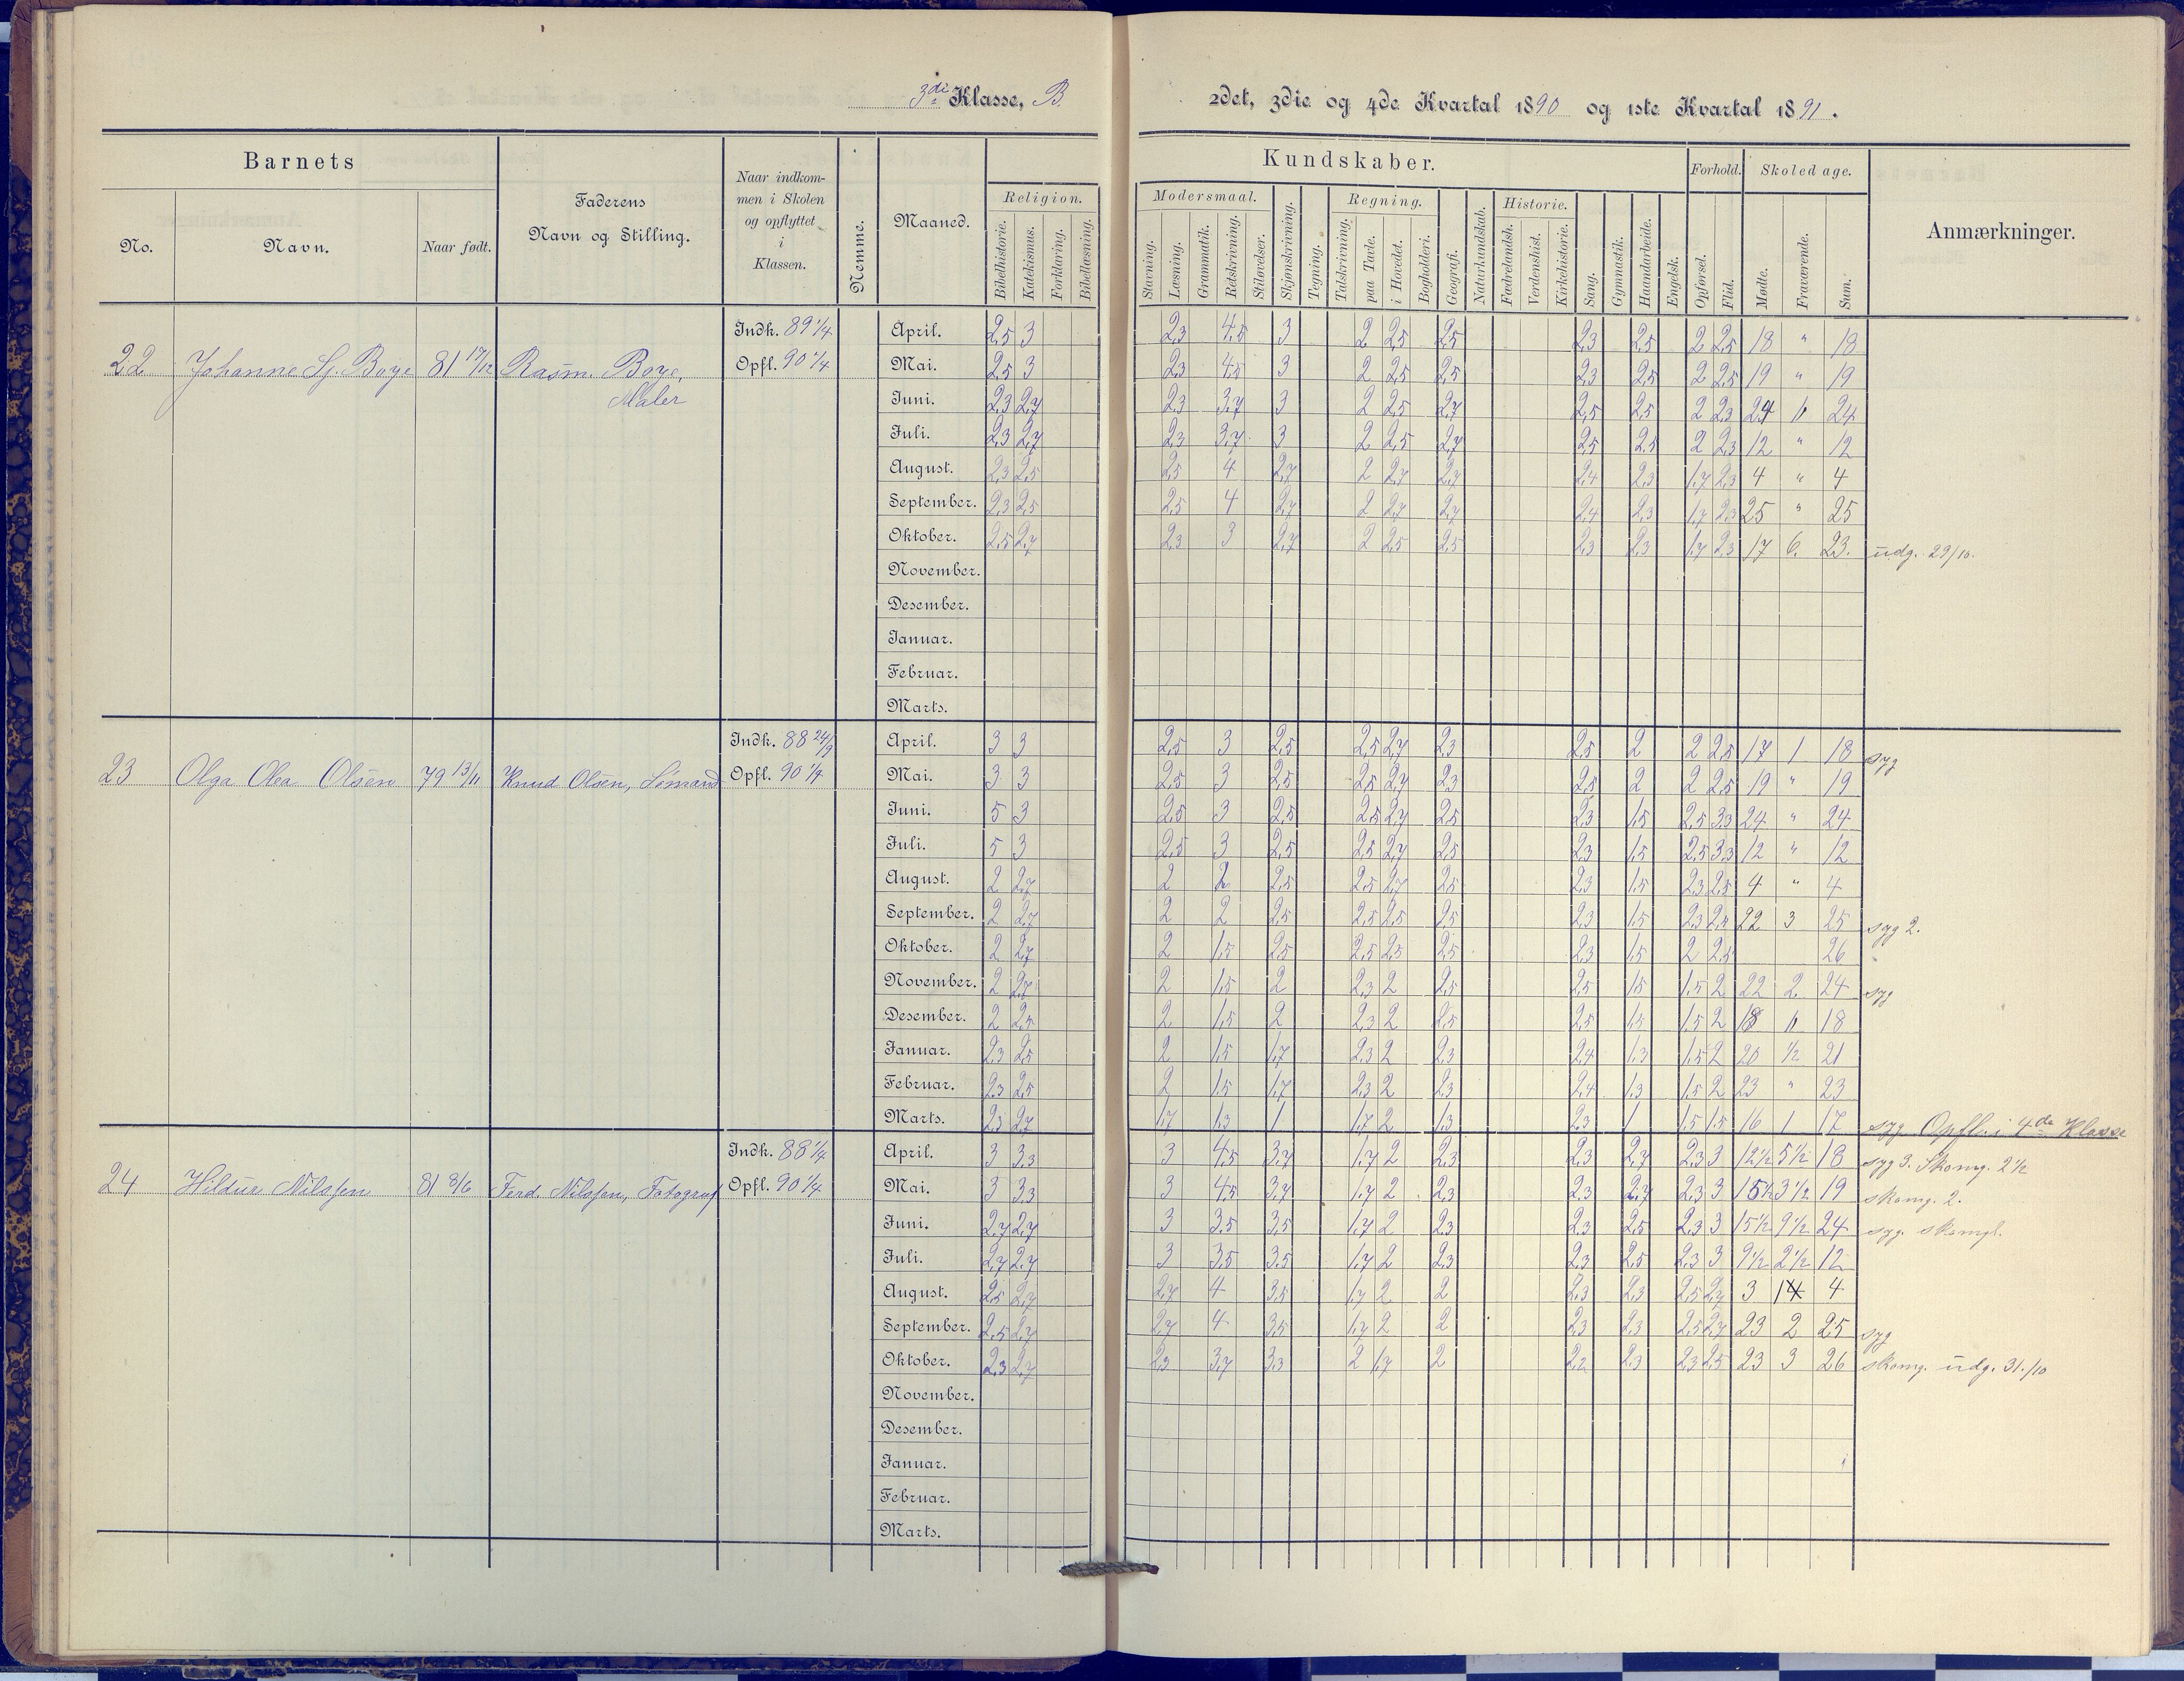 3die Klasse, B.
2det, 3die og 4de Kvartal 1890 og 1ste Kvartal 1891.
Barnets
No.
Navn.
Naar født.
Faderens
Navn og Stilling.
Naar indkom-
men i Skolen
og opflyttet
i
Klassen.
Nemme.
Maaned.
Religion.
Bibelhistorie.
Katekismus.
Forklaring.
Bibellæsning.
Kundskaber.
Modersmaal.
Stavning.
Læsning.
Grammatik.
Retskrivning.
Stiløvelser.
Skjønskrivning.
Tegning.
Regning.
Talskrivning.
paa Tavle.
i Hovedet.
Bogholderi.
Geografi.
Naturkundskab.
Historie.
Fædrelandsh.
Verdenshist.
Kirkehistorie.
Sang.
Gymnastik.
Haandarbeide.
Engelsk.
Forhold.
Opførsel.
Flid.
Skoledage.
Møde.
Fraværende.
Sum.
Anmærkninger.
22 Johanne Boye 81 17/12 Rasm. Boye, Maler
Indk. 89 1/4
Opfl. 90 1/4
April. 2,5 3 2,3 4,5 3 2 2,5 2,5 2,3 2,5 2 2,5 18 " 18
Mai. 2,5 3 2,3 4,5 3 2 2,5 2,5 2,3 2,5 2 2,5 19 " 19
Juni. 2,3 2,7 2,3 3,7 3 2 2,5 2,7 2,5 2,5 2 2,3 24 " 24
Juli. 2,3 2,7 2,3 3,7 3 2 2,5 2,7 2,5 2,5 2 2,3 12 " 12
August. 2,3 2,5 2,5 4 2,7 2 2,7 2,7 2,4 2,3 1,7 2,3 4 " 4
September. 2,3 2,5 2,5 4 2,7 2 2,7 2,7 2,4 2,3 1,7 2,3 25 " 25
Oktober. 2,5 2,7 2,3 3 2,7 2 2,5 2,5 2,3 2,3 1,7 2,3 17 6 23. udg. 29/10.
November.
Desember.
Januar.
Februar.
Marts.
23 Olga Olea Olsen 79 13/11 Knud Olsen, Sømand
Indk. 88 24/9
Opfl. 90 1/4
April. 3 3 2,5 3 2,5 2,5 2,7 2,3 2,5 2 2 2,5 17 1 18 syg
Mai. 3 3 2,5 3 2,5 2,5 2,7 2,3 2,5 2 2 2,5 19 " 19
Juni. 5 3 2,5 3 2,5 2,5 2,7 2,5 2,3 1,5 2,5 3,3 24 " 24
Juli. 5 3 2,5 3 2,5 2,5 2,7 2,5 2,3 1,5 2,5 3,3 12 " 12
August. 2 2,7 2 2 2,5 2,5 2,7 2,5 2,3 1,5 2,3 2,5 4 " 4
September. 2 2,7 2 2 2,5 2,5 2,5 2,5 2,3 1,5 2,3 2,5 22 3 25 syg 2.
Oktober. 2 2,7 2 1,5 2,5 2,5 2,5 2,5 2,3 1,5 2 2,5 26
November. 2 2,7 2 1,5 2 2,3 2 2,5 2,5 1,5 1,5 2 22 2 24 syg
Desember. 2 2,5 2 1,5 2 2,3 2 2,5 2,5 1,5 1,5 2 18 " 18
Januar. 2,3 2,5 2 1,5 1,7 2,3 2 2,3 2,4 1,3 1,5 2 20 1/2 21
Februar. 2,3 2,5 2 1,5 1,7 2,3 2 2,3 2,4 1,3 1,5 2 23 " 23
Marts. 2,3 2,7 1,7 1,3 1 1,7 2 1,3 2,3 1 1,5 1,5 16 1 17 syg Opfl. i 4de Klasse
24 Hildur Nilssen 81 8/6 Ferd. Nilssen, Fotograf
Indk. 88 1/4
Opfl. 90 1/4
April. 3 3,3 3 4,5 3,7 1,7 2 2,3 2,3 2,7 2,3 3 12 1/2 5 1/2 18 syg 3. Skomg. 2 1/2
Mai. 3 3,3 3 4,5 3,7 1,7 2 2,3 2,3 2,7 2,3 3 15 1/2 3 1/2 19 skomg. 2.
Juni. 2,7 2,7 3 3,5 3,5 1,7 2 2,3 2,3 2,5 2,3 3 15 1/2 9 1/2 24 syg.
Juli. 2,7 2,7 3 3,5 3,5 1,7 2 2,3 2,3 2,5 2,3 3 9 1/2 2 1/2 12
August. 2,5 2,7 2,7 4 3,5 1,7 2 2 2,3 2,3 2,5 2,7 3 1 4
September. 2,5 2,7 2,7 4 3,5 1,7 2 2 2,3 2,3 2,5 2,7 23 2 25 syg
Oktober. 2,3 2,7 2,3 3,7 3,3 2 1,7 2 2,2 2,3 2,3 2,5 23 3 26 skomg. udg. 31./10
November.
Desember.
Januar.
Februar.
Marts.